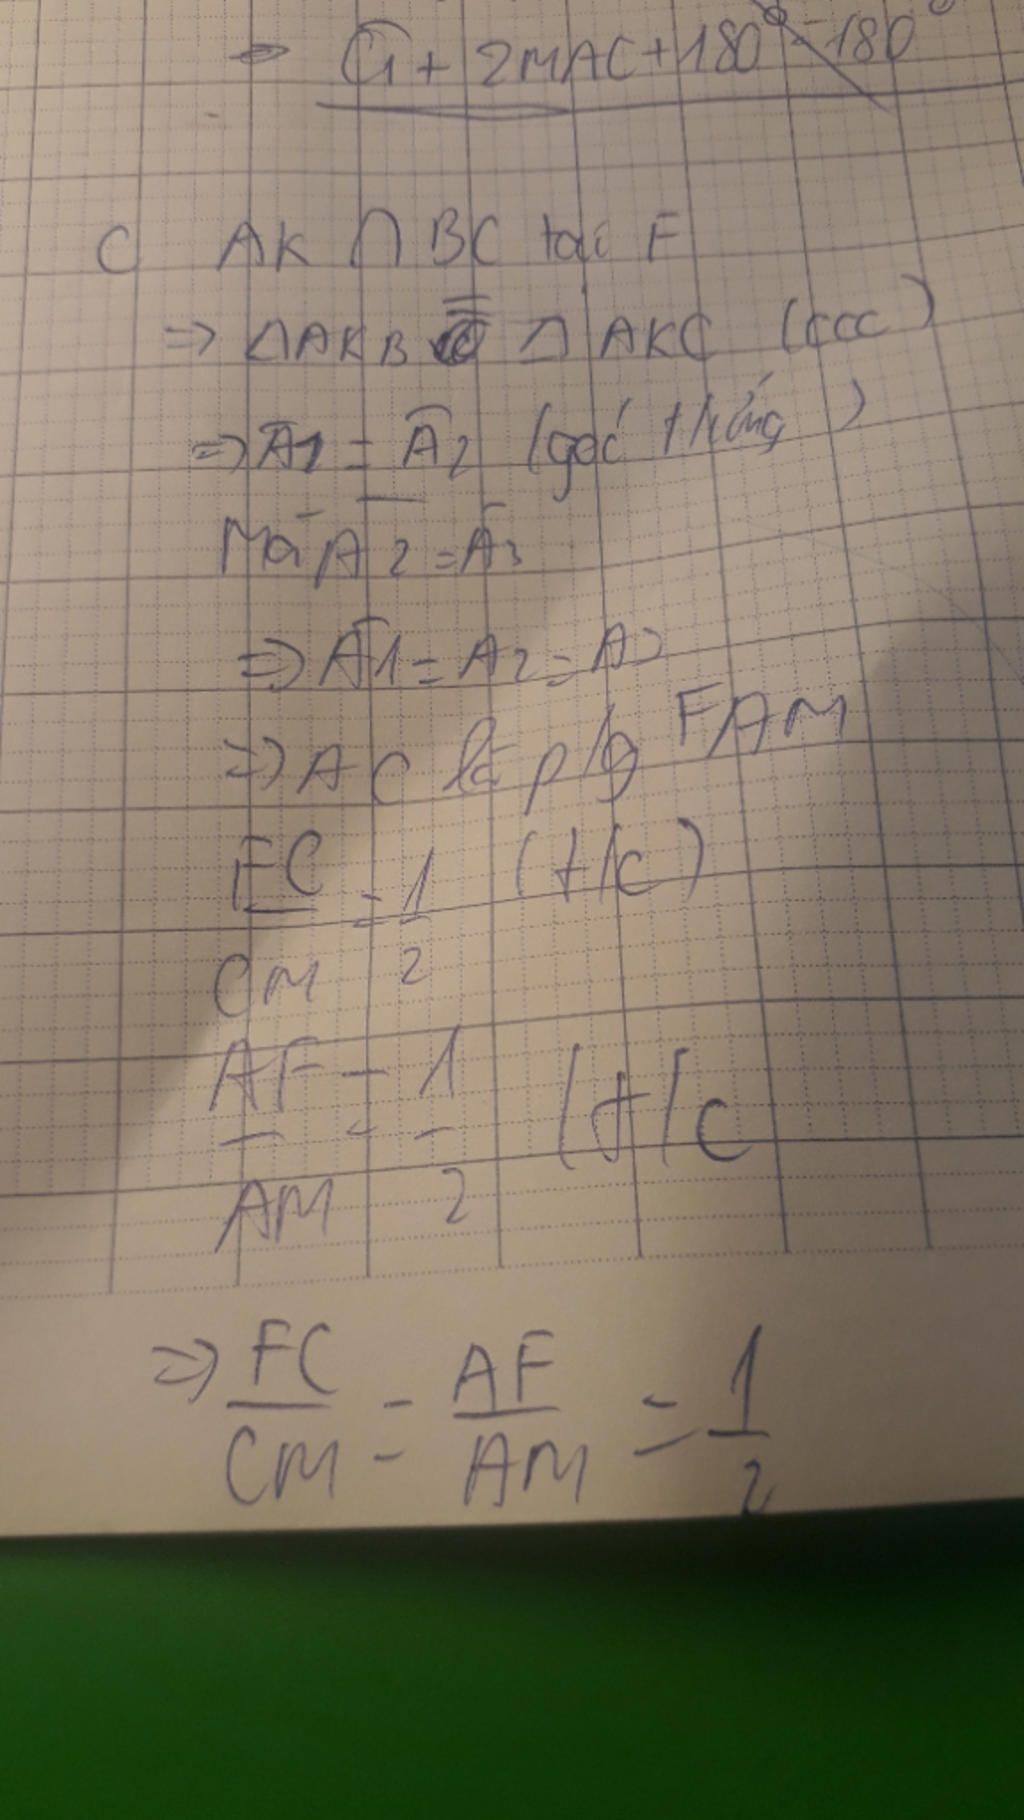 ⇒ Ĉ1 + 2MAC + 180° = 180°
C AK ∩ BC tại F
⇒ △AKB = △AKC (ccc)
⇒ Â1 = Â2 (góc tứng)
Mà A2 = Â3
⇒ Â1 = A2 = A3
⇒ AC là p/g FAM
FC/CM = 1/2 (t/c)
AF/AM = 1/2 (t/c
⇒ FC/CM = AF/AM = 1/2